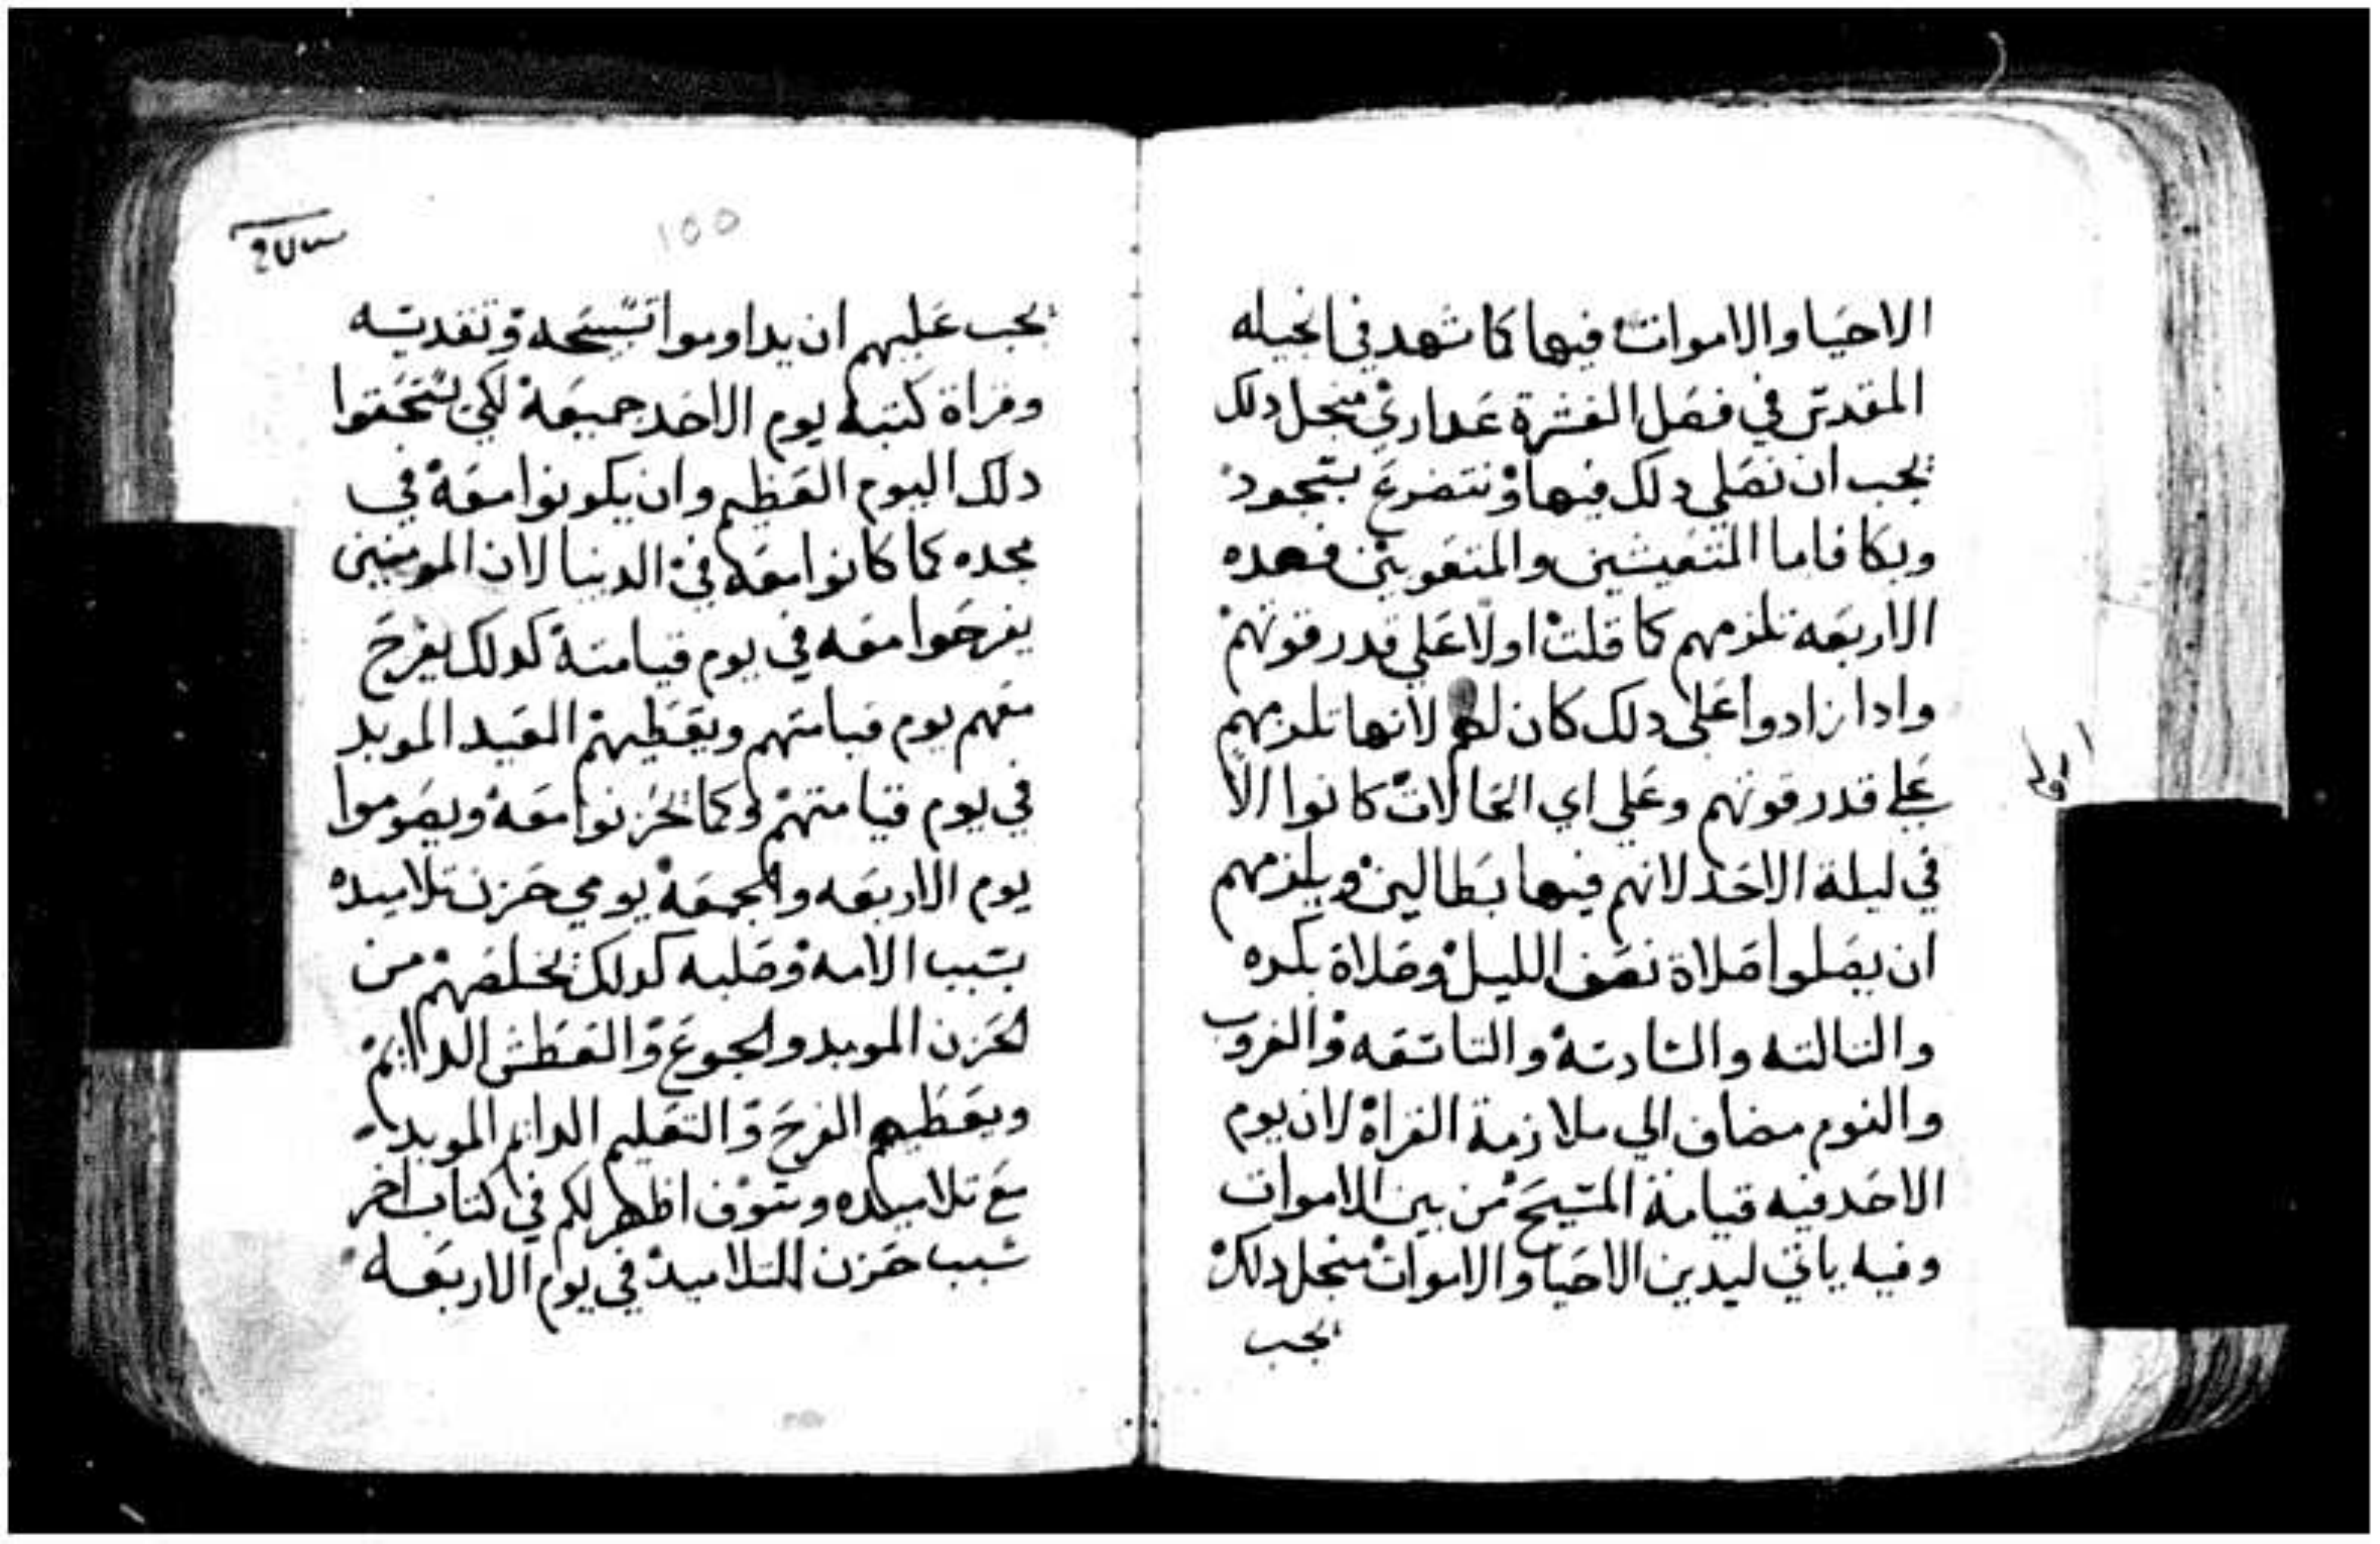 الاحيا والاموات فيها كما شهد في انجيله
المقدس في فصل العشرة عداري منجل دلك
يجب ان نصلي دلك فيها ونتضرع بسجود
وبكا فاما المتعيشين والمتعوبين فهده
الاربعه تلزمهم كما قلت اولا علي قدر قوتهم
وادا زادوا علي دلك كان لهم لانها تلزمهم
علي قدر قوتهم وعلي اي الحالات كانوا الا
في ليلة الاحد لانهم فيها بطالين ويلزمهم
ان يصلوا صلاة نصف الليل وصلاة بكره
والتالته والسادسة والتاسعه والغروب
والنوم مضاف الي ملازمة القراة لان يوم
الاحد فيه قيامة المسيح من بين الاموات
وفيه ياتي ليدين الاحيا والاموات منجل دلك
يجب
100
يجب عليهم ان يداوموا تسبيحه وتقديسه
وقراة كتبه يوم الاحد جميعة لكي يستحقوا
دلك اليوم العظيم وان يكونوا معة في
مجده كما كانوا معه في الدنيا لان المومنين
يفرحوا معه في يوم قيامتة كدلك يفرح
معهم يوم قيامتهم ويعطيهم العيد الموبد
في يوم قيامتهم وكما يحزنوا معة ويصوموا
يوم الاربعه والجمعة يومي حزن تلاميده
بسبب الامه وصلبه كدلك يخلصهم من
الحزن الموبد والجوع والعطش الدايم
ويعطيهم الفرح والتعليم الدايم الموبد
مع تلاميده وسوف اظهر لكم في كتاب اخر
سبب حزن التلاميد في يوم الاربعه